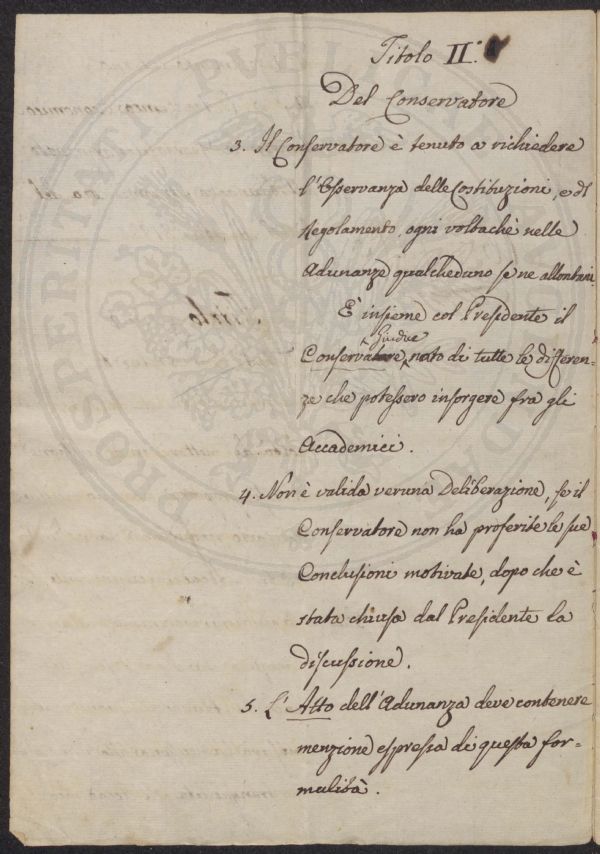 Titolo II.°
Del Conservatore
3. Il Conservatore è tenuto a richiedere
l'Osservanza delle Costituzioni, e di
Regolamento, ogni voltachè nelle
Adunanze qualcheduno se ne allontani.
È insieme col Presidente il
Giudice
Conservatore, nato di tutte le differen-
ze che potessero insorgere fra gli
Accademici.
4. Non è valida veruna Deliberazione, se il
Conservatore non ha proferite le sue
Conclusioni motivate, dopo che è
stata chiusa dal Presidente la
discussione.
5. L'Atto dell'Adunanza deve contenere
menzione espressa di questa for-
malità.
PROSPERITATI PUBLICAE